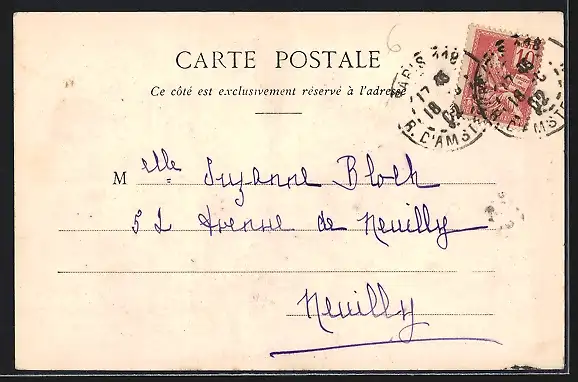 CARTE POSTALE
Ce côté est exclusivement réservé à l'adresse
Melle Suzanne Bloch
52 Avenue de Neuilly
Neuilly
PARIS 118
17 45
18 02
R. D'AMSTE
10
6